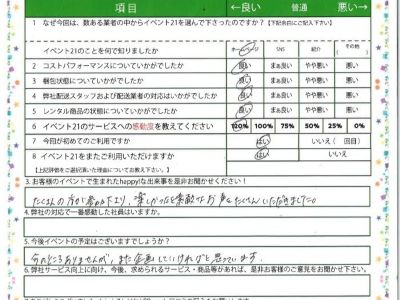 項目 ←良い 普通 悪い→
1 なぜ今回は、数ある業者の中からイベント21を選んで下さったのですか?【下記余白にご記入下さい】
イベント21のことを何で知りましたか ホームページ SNS 紹介 その他( )
2 コストパフォーマンスについていかがでしたか 良い まぁ良い やや悪い 悪い
3 梱包状態についていかがでしたか 良い まぁ良い やや悪い 悪い
4 弊社配送スタッフおよび配送業者の対応はいかがでしたか 良い まぁ良い やや悪い 悪い
5 レンタル商品の状態についていかがでしたか 良い まぁ良い やや悪い 悪い
6 イベント21のサービスへの感動度を教えてください 120% 100% 75% 50% 25% 0%
7 今回が初めてのご利用ですか はい いいえ( 回目)
8 イベント21をまたご利用いただけますか はい いいえ
【上記評価をご選択頂いた理由についてお教え下さい】
3. お客様のイベントで生まれたhappy!な出来事を是非お聞かせください!
たくさんの方が 楽しかった お声をたくさんいただきました。
4. 弊社の対応で一番感動した社員はいますか。
5. 今後イベントの予定はございますでしょうか?
今のところありませんが、また企画していければと思っています。
6. 弊社サービス向上に向け、今後、求められるサービス・商品等があれば、是非お客様のご意見をお聞かせ下さい。